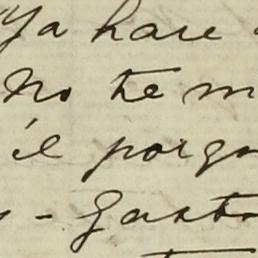 Ya hare
No te m
él porqu
- Gasto